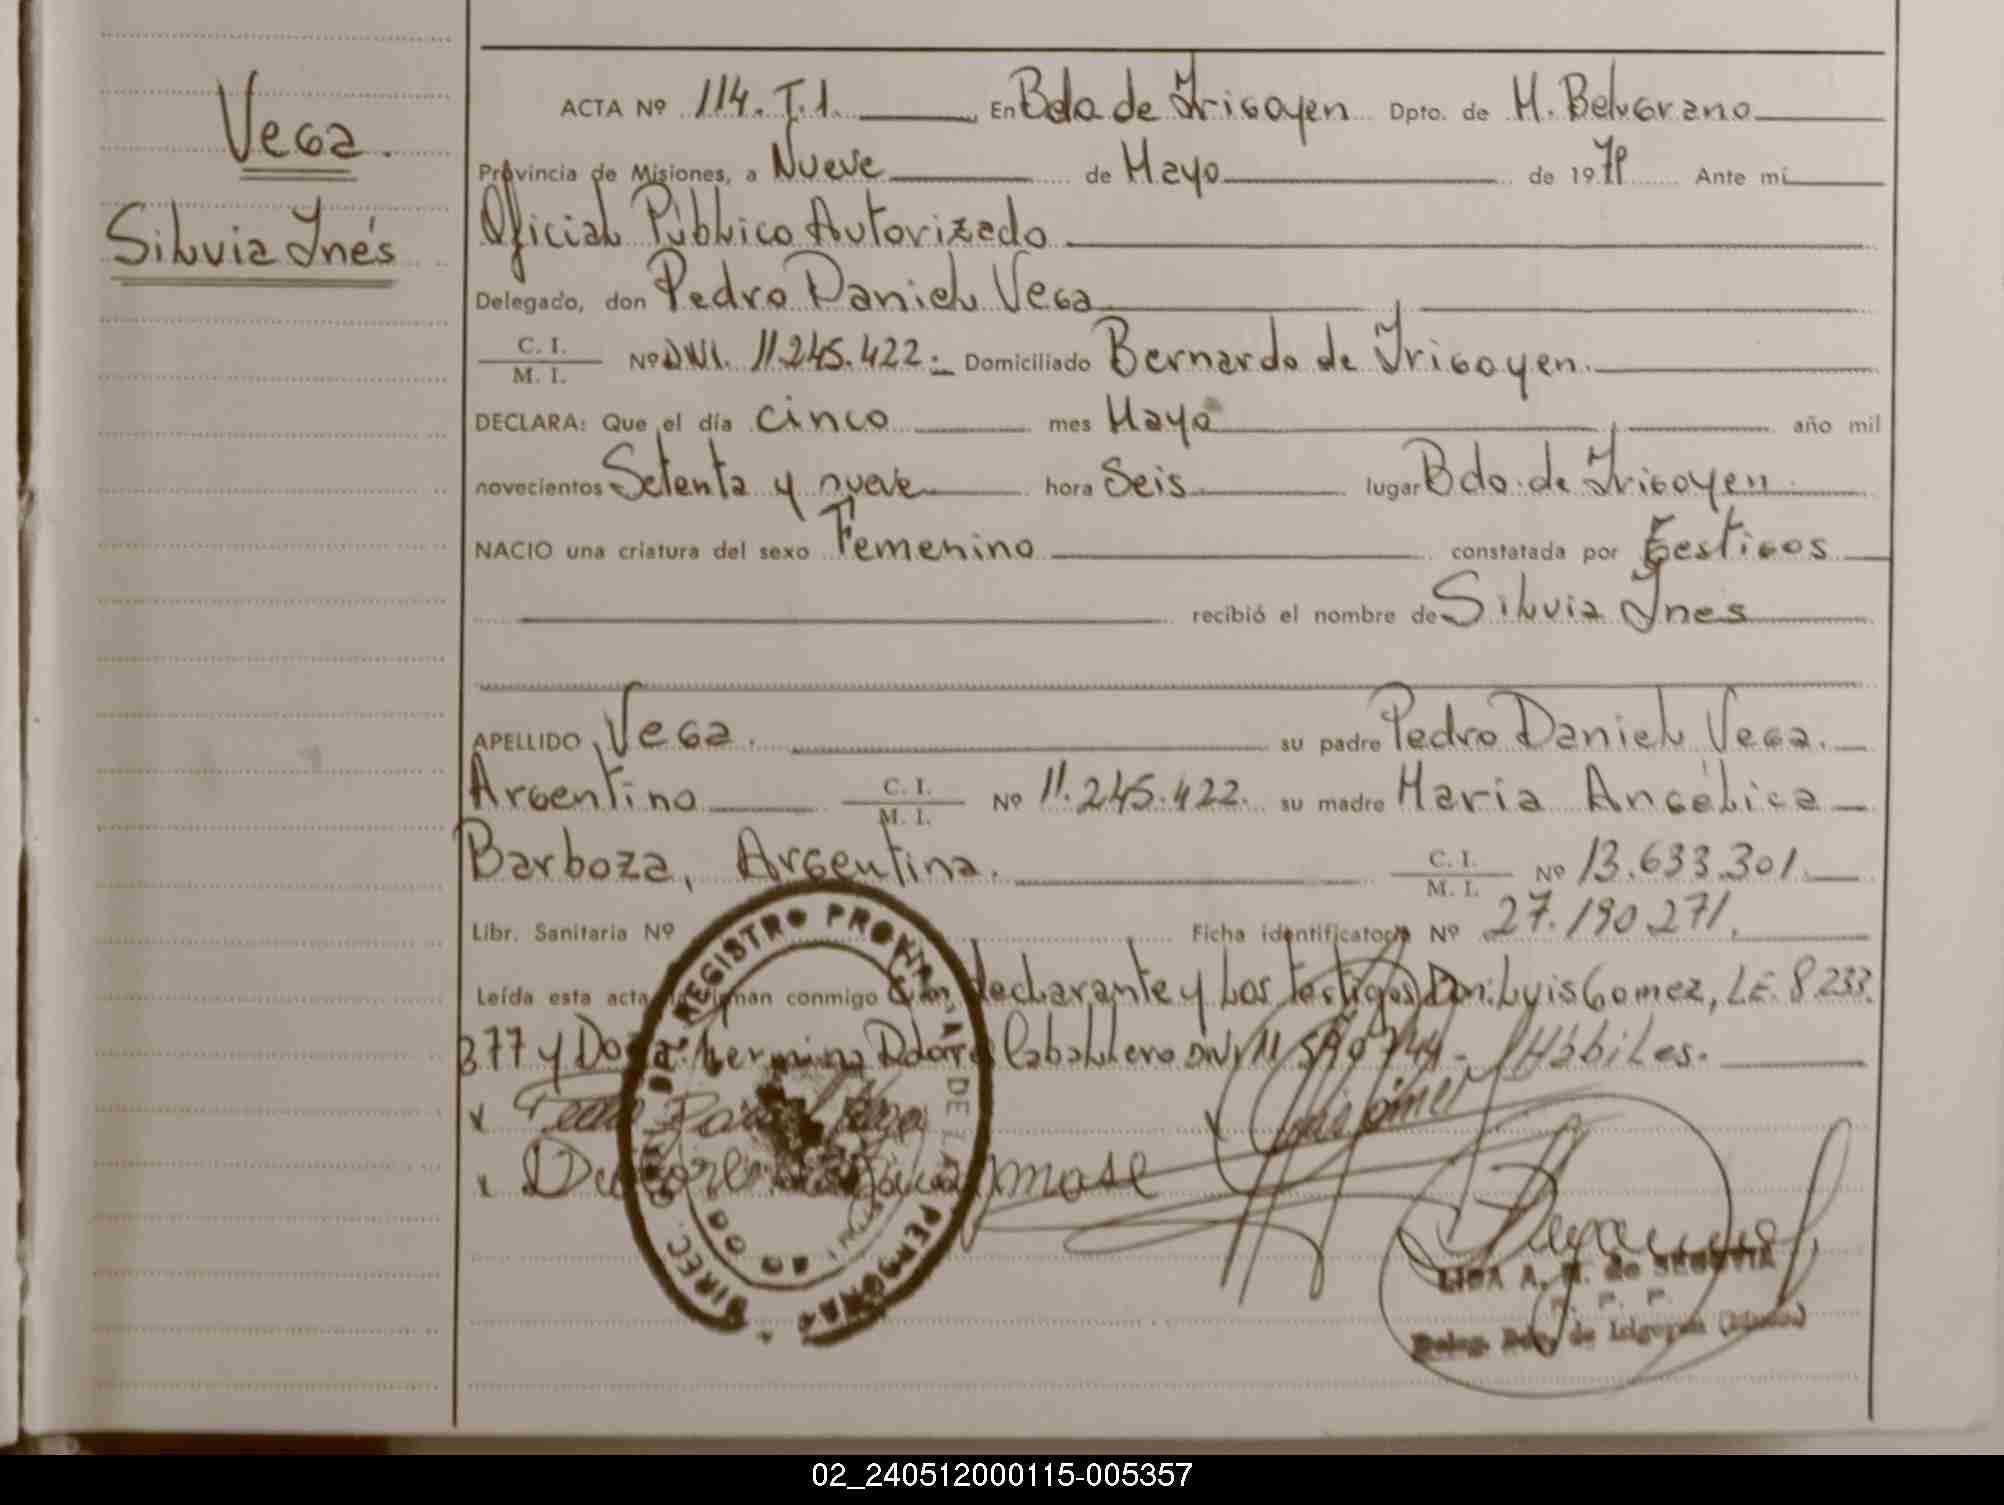 Vega.
Silvia Inés
ACTA Nº 114. T.1. En Bdo de Irigoyen Dpto. de M. Belgrano
Provincia de Misiones, a Nueve de Mayo de 1979 Ante mí
Oficial Público Autorizado
Delegado, don Pedro Daniel Vega
C. I.
M. I.
Nº DNI. 11.245.422.- Domiciliado Bernardo de Irigoyen.
DECLARA: Que el día cinco mes Mayo año mil
novecientos Setenta y nueve hora Seis lugar Bdo. de Irigoyen.
NACIO una criatura del sexo Femenino constatada por testigos
recibió el nombre de Silvia Inés
APELLIDO Vega. su padre Pedro Daniel Vega.
Argentino C. I. M. I. Nº 11.245.422. su madre Maria Angélica
Barboza, Argentina. C. I. M. I. Nº 13.633.301.
Libr. Sanitaria Nº Ficha identificatoria Nº 27.190.271.
Leída esta acta la firman conmigo el declarante y los testigos Don: Luis Gomez, L.E. 8.233.
377 y Doña: hermina Caballero DNI 11 Hábiles.
x Pedro Daniel Vega x Luis Gomez
x
DIREC. GRAL. DEL REGISTRO PROVINCIAL DE LAS PERSONAS
LIDA A. M. de SEGOVIA
Deleg. Bdo. de Irigoyen (Misiones)
02_240512000115-005357